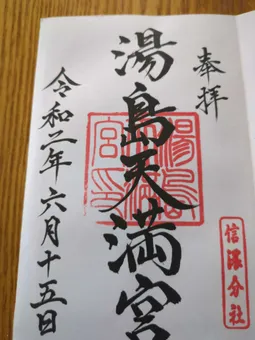 奉拝
湯島天満宮
令和二年六月十五日
湯島
天満
宮印
信濃分社